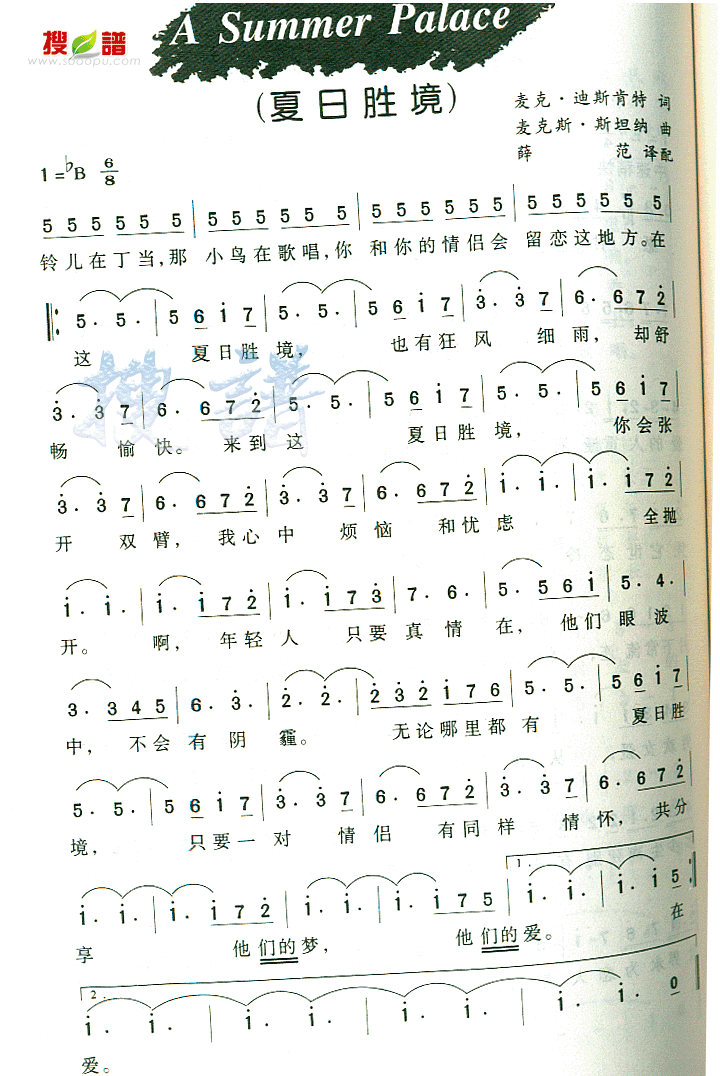 搜谱
www.sooopu.com
A Summer Palace
(夏日胜境)
麦克·迪斯肯特 词
麦克斯·斯坦纳 曲
薛 范 译配
1=♭B 6/8
5 5 5 5 5 5 | 5 5 5 5 5 5 | 5 5 5 5 5 5 | 5 5 5 5 5 5
铃儿在丁当,那 小鸟在歌唱,你 和你的情侣会 留恋这地方。在
‖: 5. 5. | 5 6 i 7 | 5. 5. | 5 6 i 7 | 3. 3 7 | 6. 6 7 2
这 夏日胜 境, 也有狂 风 细雨, 却舒
3. 3 7 | 6. 6 7 2 | 5. 5. | 5 6 i 7 | 5. 5. | 5 6 i 7
畅 愉 快。 来到这 夏日胜 境, 你会张
3. 3 7 | 6. 6 7 2 | 3. 3 7 | 6. 6 7 2 | i. i. | i. i 7 2
开 双臂, 我心中 烦恼 和忧虑 全抛
i. i. | i. i 7 2 | i. i 7 3 | 7. 6. | 5. 5 6 i | 5. 4.
开。 啊, 年轻人 只要真情在, 他们眼波
3. 3 4 5 | 6. 3. | 2. 2. | 2 3 2 i 7 6 | 5. 5. | 5 6 i 7
中, 不会有阴 霾。 无论哪里都有 夏日胜
5. 5. | 5 6 i 7 | 3. 3 7 | 6. 6 7 2 | 3. 3 7 | 6. 6 7 2
境, 只要一对 情侣 有同样 情怀, 共分
i. i. | i. i 7 2 | i. i. | i. i 7 5 | 1. i. i. | i. i 5 :‖
享 他们的梦, 他们的爱。 在
2. i. i. | i. i. | i. i. | i. i. | i. i. | i. i 0
爱。